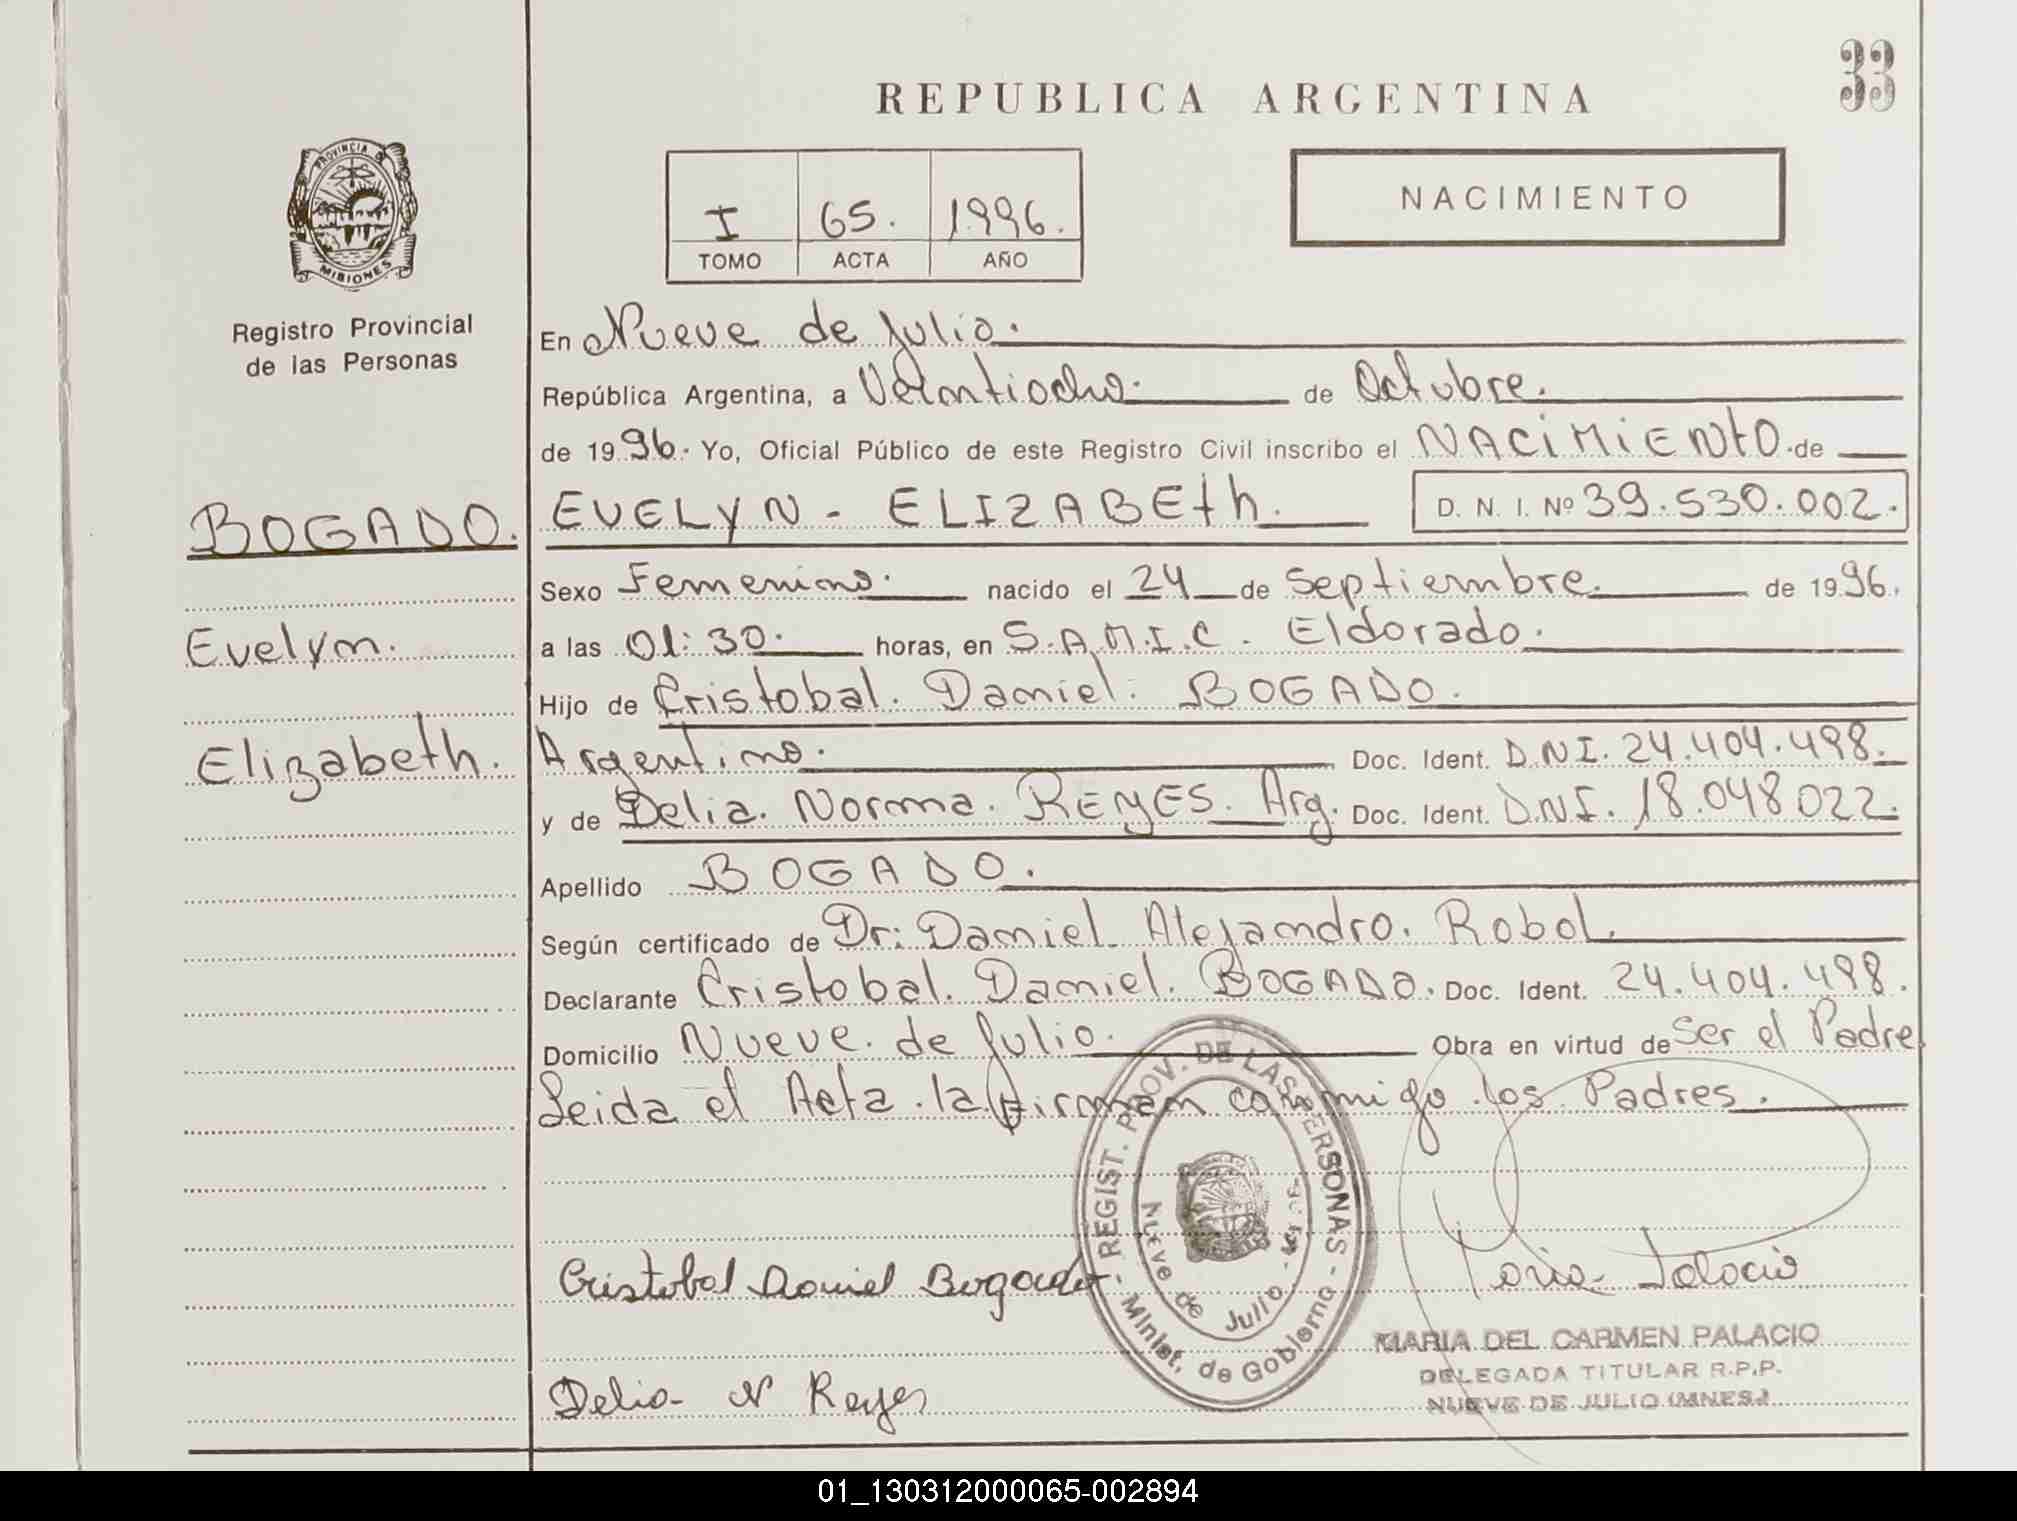 33
REPUBLICA ARGENTINA
PROVINCIA DE
MISIONES
Registro Provincial
de las Personas
I 65. 1996.
TOMO ACTA AÑO
NACIMIENTO
En Nueve de Julio.
República Argentina, a Veintiocho. de Octubre.
de 1996. Yo, Oficial Público de este Registro Civil inscribo el NACIMIENTO de
BOGADO. EVELYN - ELIZABETH. D. N. I. Nº 39.530.002.
Sexo Femenino. nacido el 24 de Septiembre. de 1996.
Evelyn. a las 01:30. horas, en S.A.M.I.C. Eldorado.
Hijo de Cristobal. Daniel. BOGADO.
Elizabeth. Argentino. Doc. Ident. D.N.I. 24.404.498.
y de Delia. Norma. REYES. Arg. Doc. Ident. D.N.I. 18.048.022.
Apellido BOGADO.
Según certificado de Dr: Daniel Alejandro. Robol.
Declarante Cristobal. Daniel. BOGADO. Doc. Ident. 24.404.498.
Domicilio Nueve. de Julio. Obra en virtud de Ser el Padre
Leida el Acta. la Firman conmigo los Padres.
REGIST. PROV. DE LAS PERSONAS - Minist. de Gobierno -
Nueve de Julio
Cristobal Daniel Bogado
Maria Palacio
MARIA DEL CARMEN PALACIO
DELEGADA TITULAR R.P.P.
NUEVE DE JULIO (MNES.)
Delia N Reyes
01_130312000065-002894